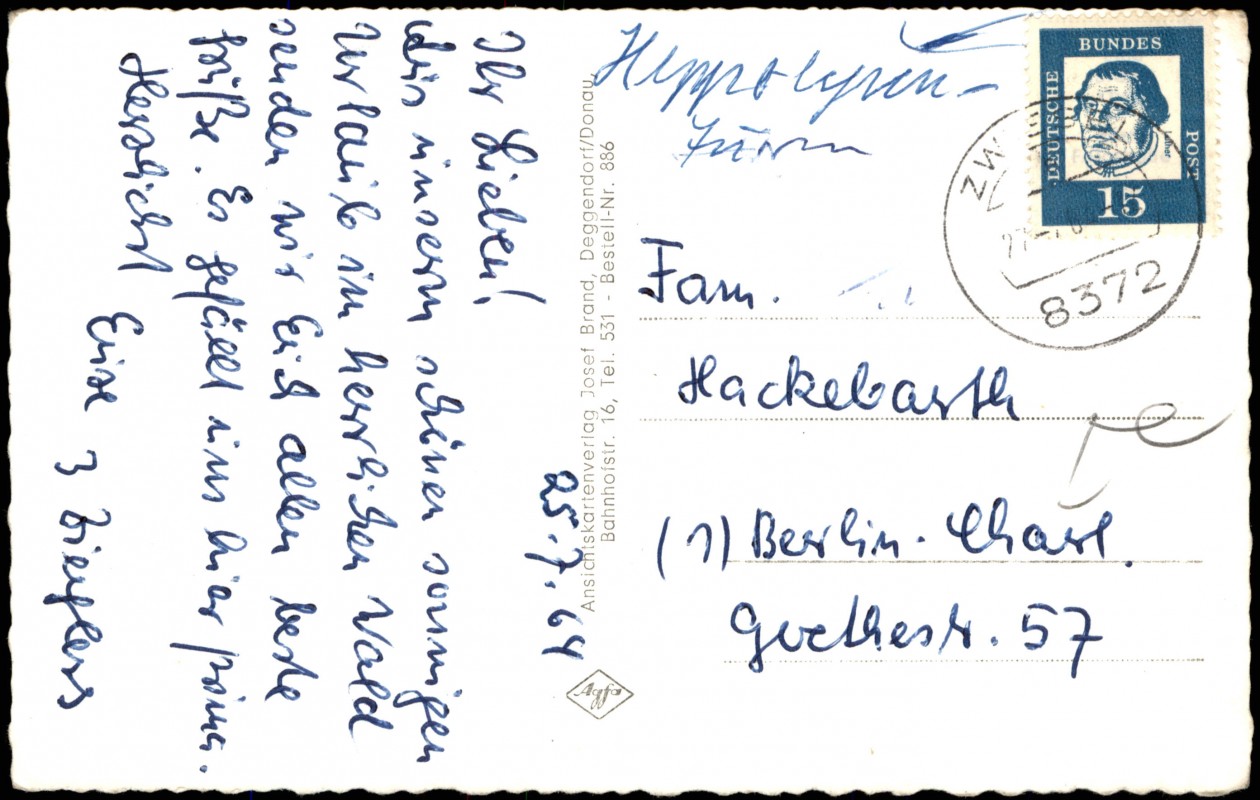 25.7.64
Ihr Lieben!
Aus unserm schönen sonnigen
Urlaub im herrlichen Wald
senden wir Euch allen beste
Grüße. Es gefällt uns hier prima.
Herzlichst Eure 3
Ansichtskartenverlag Josef Brand, Deggendorf/Donau
Bahnhofstr. 16, Tel. 531 - Bestell-Nr. 886
Agfa
DEUTSCHE
BUNDES
POST
Luther
15
ZW
8372
Fam.
Hackebarth
(1) Berlin-Charl.
Goethestr. 57